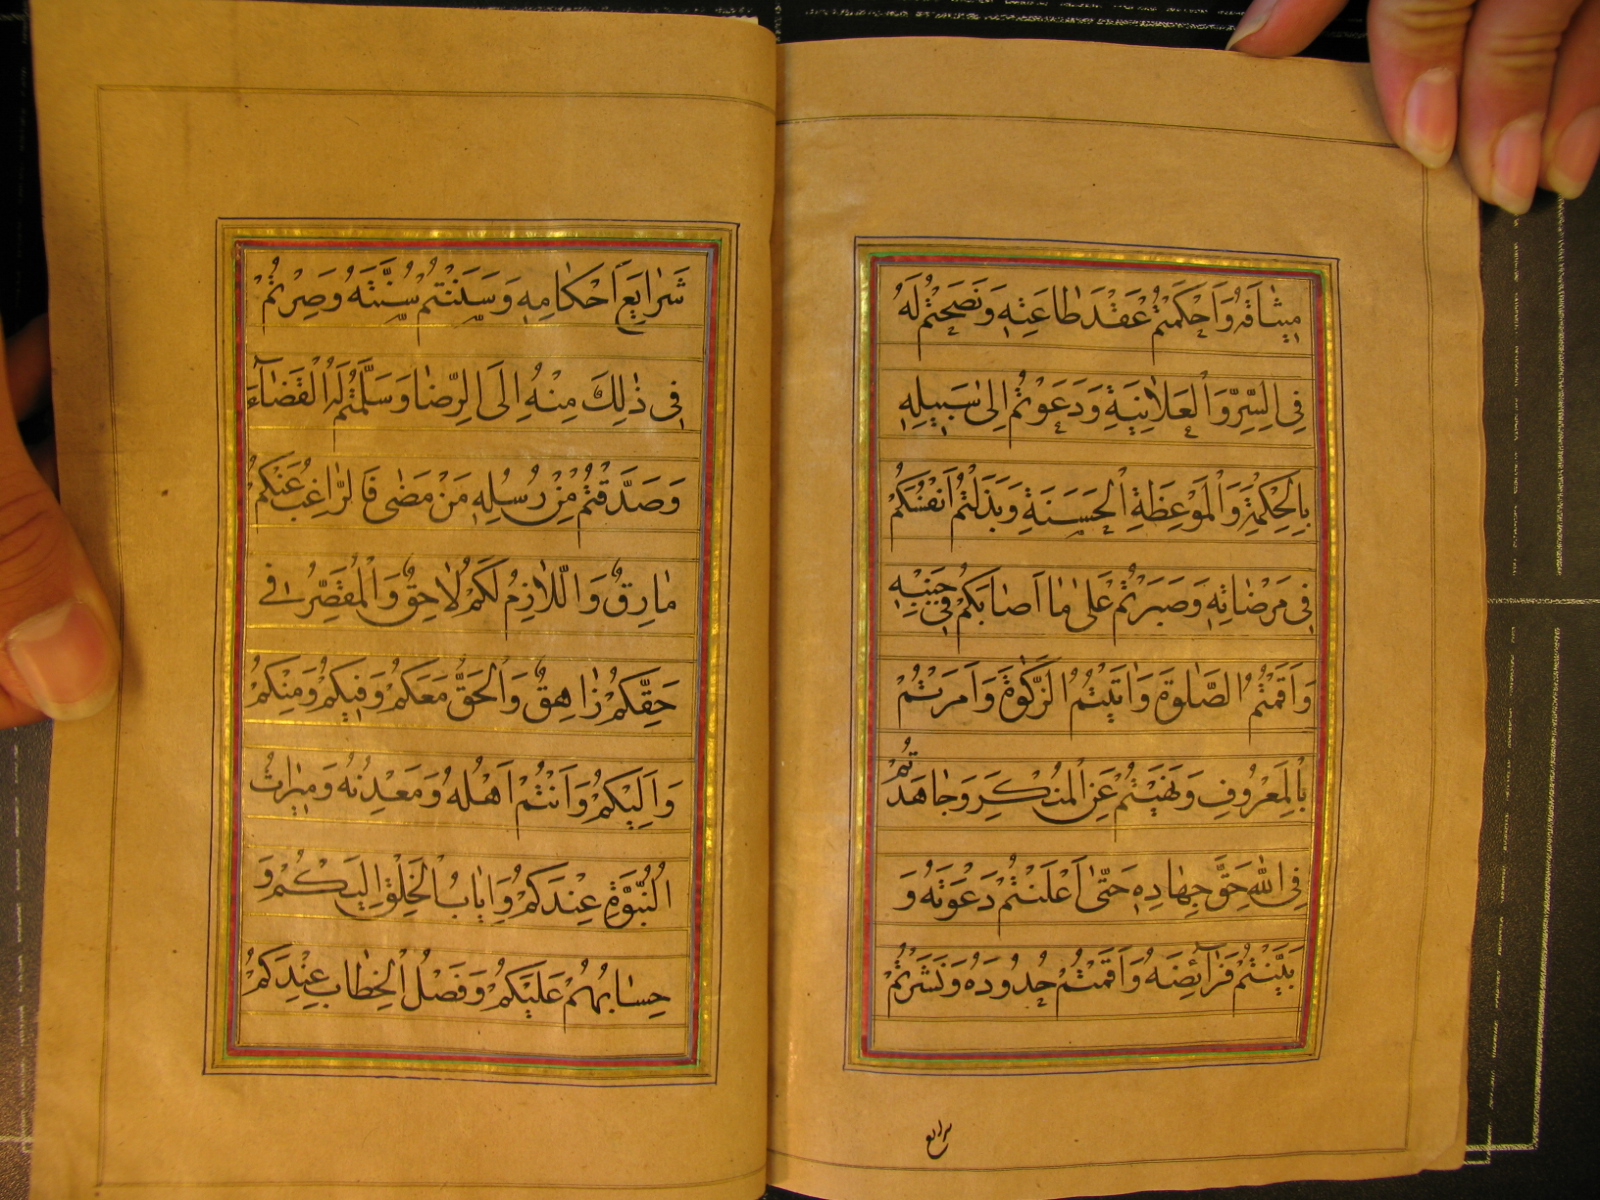 مِيثٰاقَهُ وَاَحْكَمْتُمْ عَقْدَ طٰاعَتِهِ وَنَصَحْتُمْ لَهُ
فِى السِّرِّ وَالْعَلٰانِيَةِ وَدَعَوْتُمْ اِلىٰ سَبِيلِهِ
بِالْحِكْمَةِ وَالْمَوْعِظَةِ الْحَسَنَةِ وَبَذَلْتُمْ اَنْفُسَكُمْ
فِى مَرْضٰاتِهِ وَصَبَرْتُمْ عَلىٰ مٰا اَصٰابَكُمْ فِى جَنْبِهِ
وَاَقَمْتُمُ الصَّلٰوةَ وَاٰتَيْتُمُ الزَّكٰوةَ وَاَمَرْتُمْ
بِالْمَعْرُوفِ وَنَهَيْتُمْ عَنِ الْمُنْكَرِ وَجٰاهَدْتُمْ
فِى اللّٰهِ حَقَّ جِهٰادِهِ حَتّىٰ اَعْلَنْتُمْ دَعْوَتَهُ وَ
بَيَّنْتُمْ فَرٰآئِضَهُ وَاَقَمْتُمْ حُدُودَهُ وَنَشَرْتُمْ
شرایع
شَرٰايِعَ اَحْكٰامِهِ وَسَنَنْتُمْ سُنَّتَهُ وَصِرْتُمْ
فِى ذٰلِكَ مِنْهُ اِلَى الرِّضٰا وَسَلَّمْتُمْ لَهُ الْقَضٰآءَ
وَصَدَّقْتُمْ مِنْ رُسُلِهِ مَنْ مَضٰى فَالرّٰاغِبُ عَنْكُمْ
مٰارِقٌ وَاللّٰازِمُ لَكُمْ لٰاحِقٌ وَالْمُقَصِّرُ فِى
حَقِّكُمْ زٰاهِقٌ وَالْحَقُّ مَعَكُمْ وَفِيكُمْ وَمِنْكُمْ
وَاِلَيْكُمْ وَاَنْتُمْ اَهْلُهُ وَمَعْدِنُهُ وَمِيرٰاثُ
النُّبُوَّةِ عِنْدَكُمْ وَاِيٰابُ الْخَلْقِ اِلَيْكُمْ وَ
حِسٰابُهُمْ عَلَيْكُمْ وَفَصْلُ الْخِطٰابِ عِنْدَكُمْ